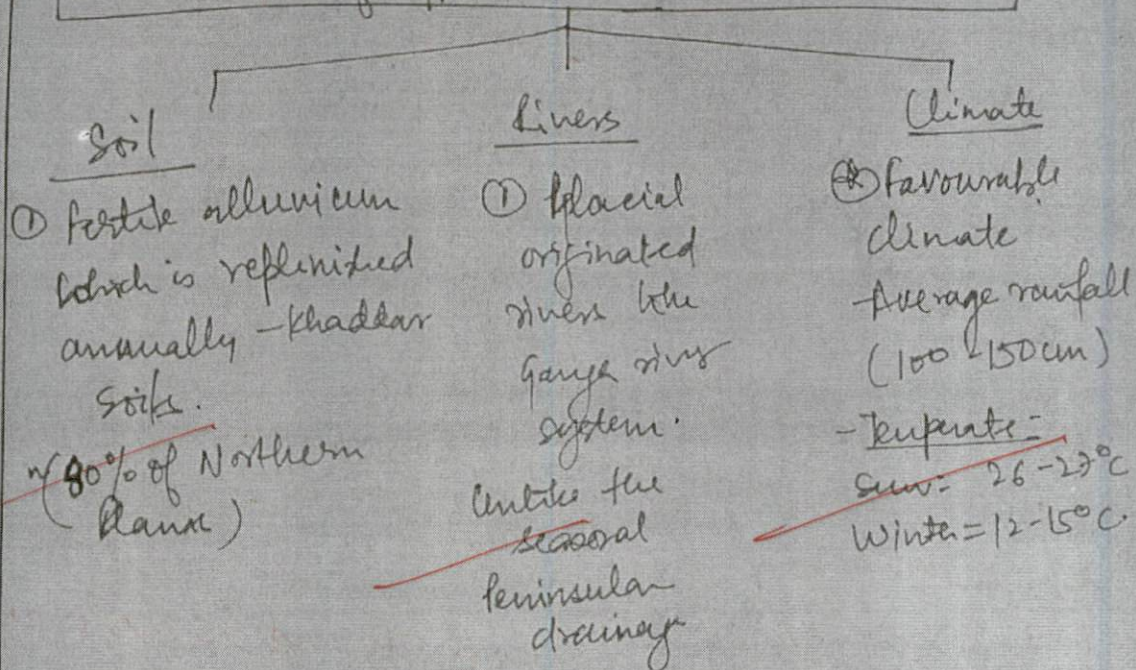 Soil
① Fertile alluvium
which is replenished
annually - Khaddar
soils.
~(80% of Northern
Plains)
Rivers
① Glacial
originated
rivers like
Ganga river
system.
Unlike the
seasonal
Peninsular
drainage
Climate
Favourable
climate
- Average rainfall
(100-150 cm)
- Temperate =
Sum = 26-27°C
Winter = 12-15°C.